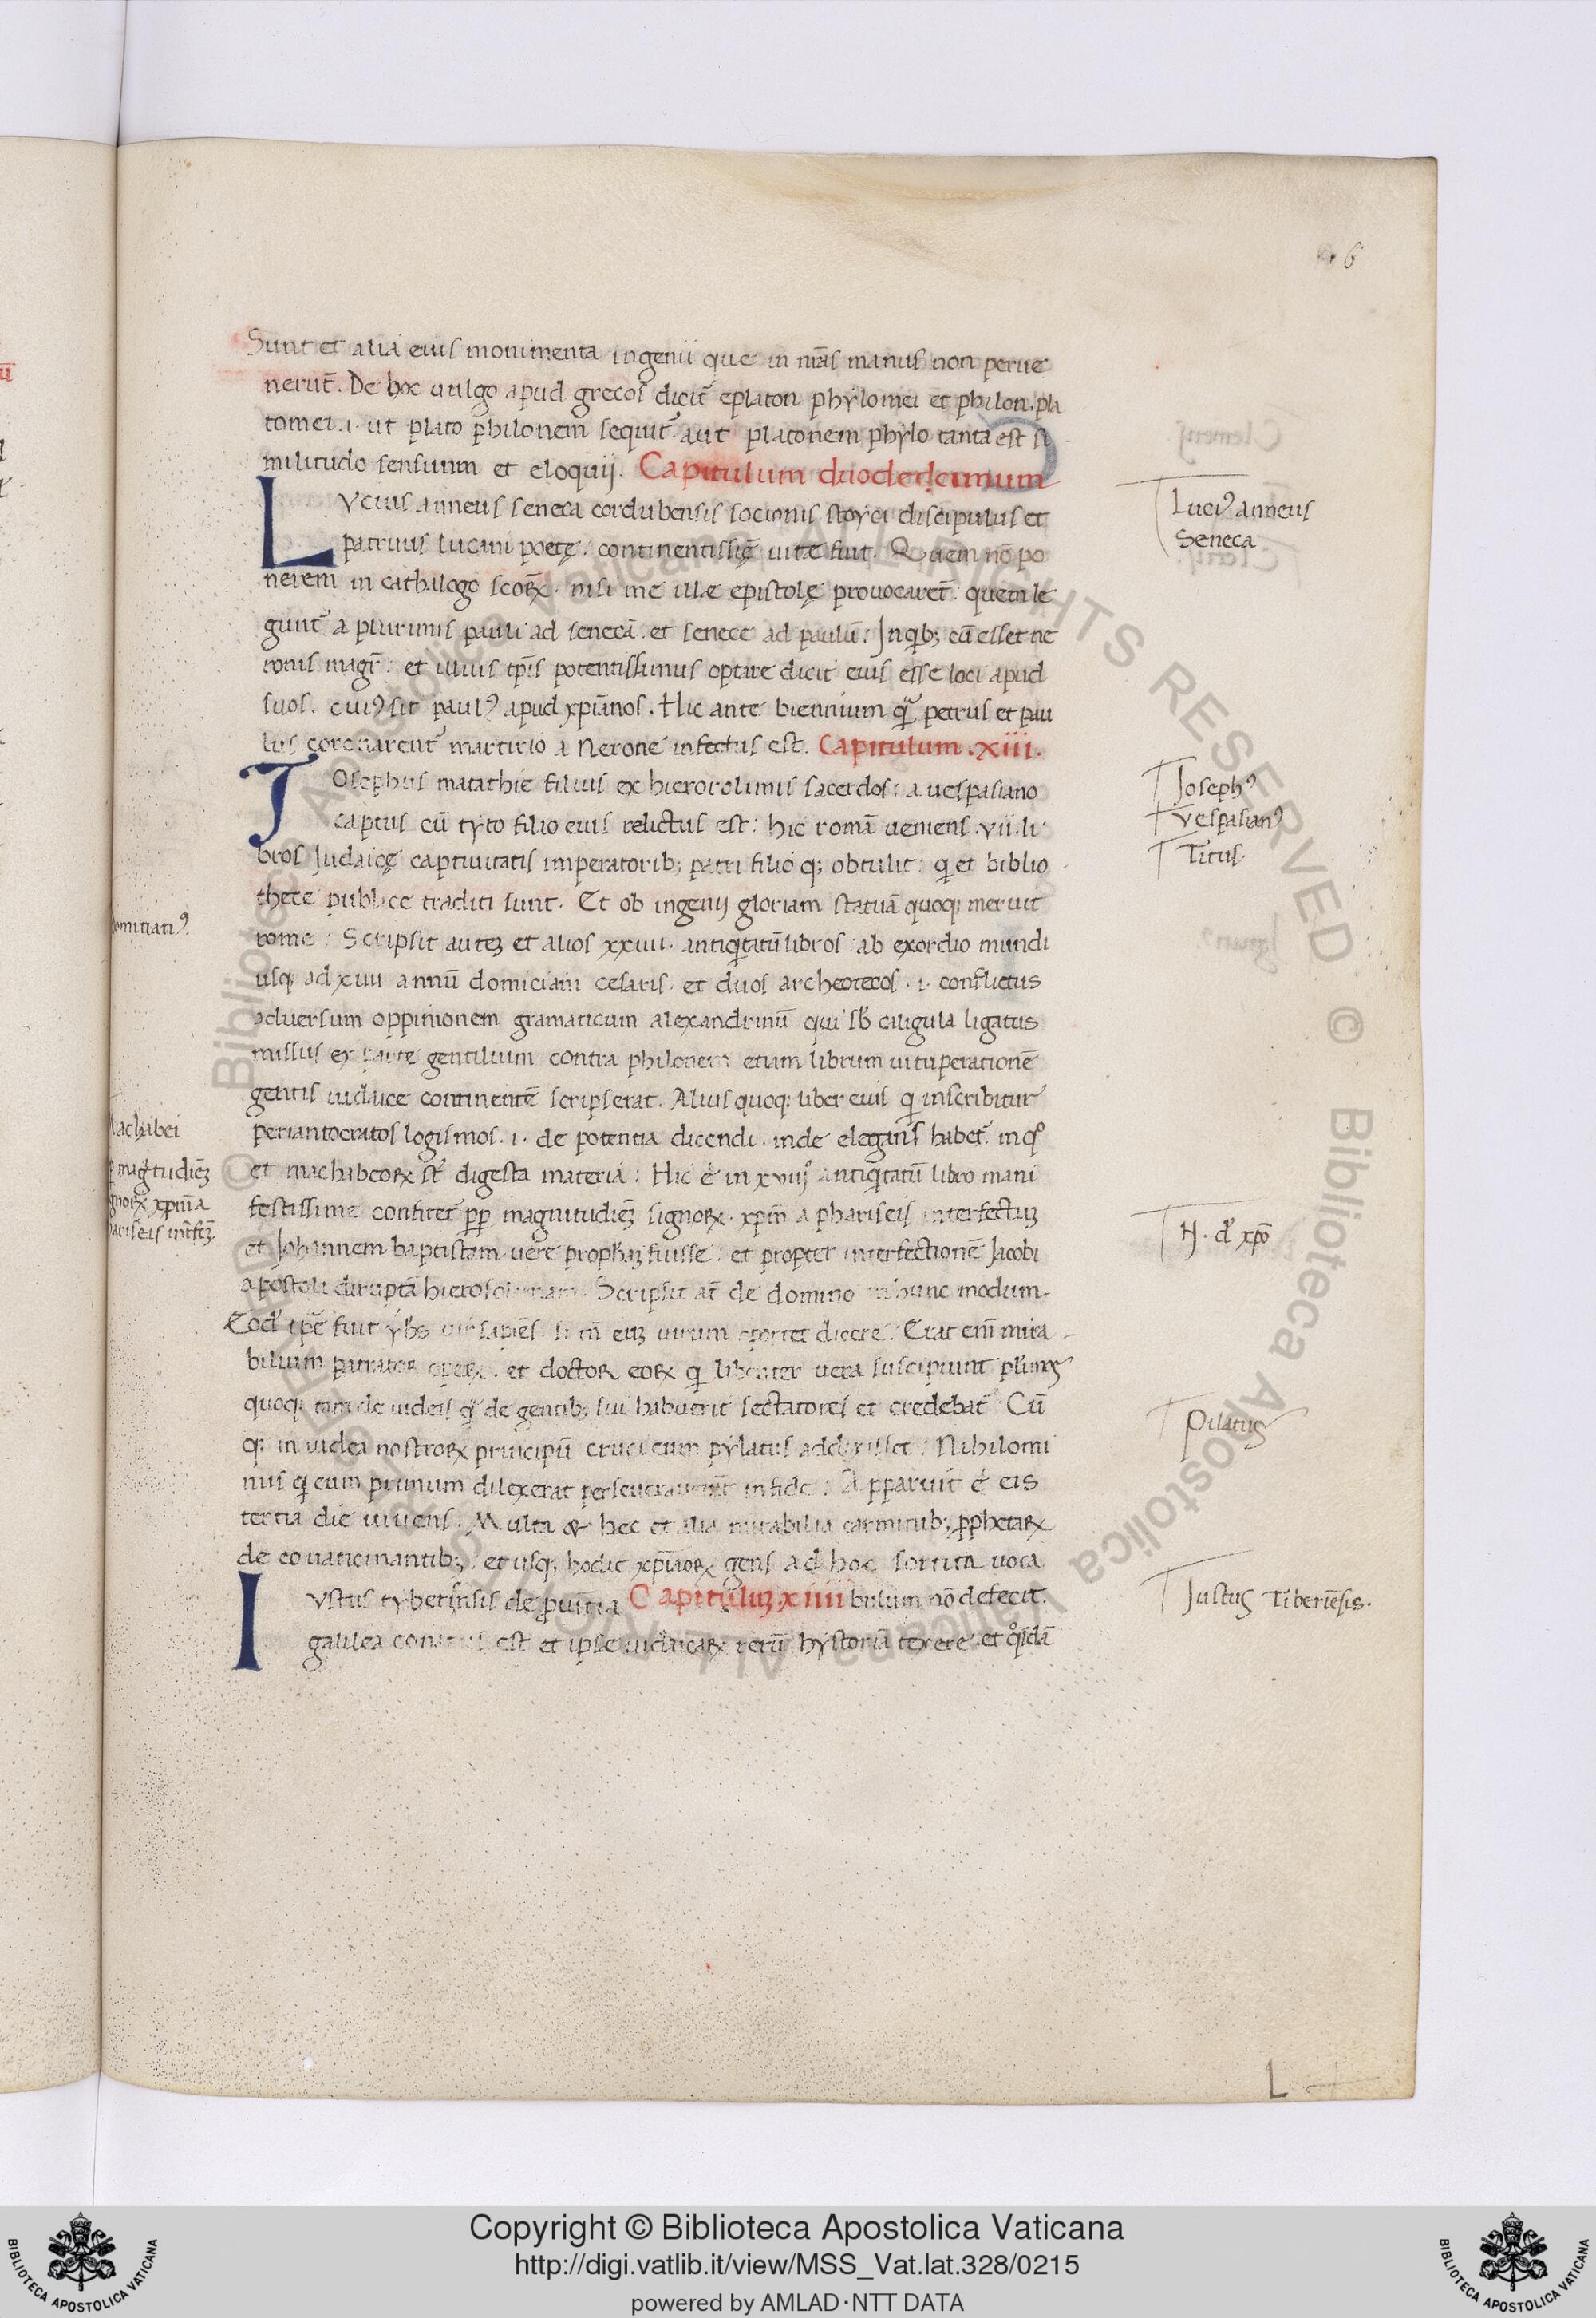 6
Sunt et alia eius monumenta ingenii que in nr̄as manus non perue
nerūt. De hoc uulgo apud grecos dicit̄ eplaton phylomei et philon. pla
tomei .i. ut plato philonem sequit̄ aut platonem phylo tanta est si
militudo sensuum et eloquij. Capitulum duodecimum
LVcius anneus seneca cordubensis socionis stoyci discipulus et
patruus lucani poetę. continentissię uitæ fuit. Quem nō po
nerem in cathalogo scōꝝ. nisi me illæ epistolę prouocarēt. quem le
gunt̄ a plurimis pauli ad senecā. et senece ad paulū: In qib; cū esset ne
ronis magr̄: et illius tp̄is potentissimus optare dicit eius esse loci apud
suos. cuiꝰ sit paulꝰ apud xp̄ianos. Hic ante biennium q̄ petrus et pau
lus coronarent̄ martirio a Nerone infectus est. Capitulum .xiii.
IOsephus matathie filius ex hierorolimis sacerdos: a uespasiano
captus cū tyto filio eius relictus est: hic romā ueniens .vii. li
bros Iudaicę captiuitatis imperatorib; patri filio q; obtulit: q et biblio
thece publice traditi sunt. Et ob ingenij gloriam statuā quoq; meruit
rome: Scripsit autez et alios xxiiii. antiqitatū libros ab exordio mundi
usq; ad xiiii annū domiciani cesaris. et duos archeotecos .i. conflictus
aduersum oppinionem gramaticum alexandrinū qui sb̄ caligula ligatus
missus ex parte gentilium contra philonem etiam librum uituperationē
gentis iudaice continentē scripserat. Alius quoq; liber eius q inscribitur
periantocratos logismos .i. de potentia dicendi. inde elegans habet̄. in qo
et machabeoꝝ st̄ digesta materia: Hic ē in xviijo antiqitatū libro mani
festissime confitet̄ pp̄ magnitudiēz signoꝝ. xpm̄ a phariseis interfectuz
et Iohannem baptistam uere prophaz fuisse: et propter interfectionē Iacobi
apostoli diruptā hierosolimam. Scripsit at̄ de domino in hunc modum
Eod ip̄e fuit yhs uir sapiēs. si tn̄ euz uirum oportet dicere. Erat eni̅ mira
bilium patrator operꝝ. et doctor eoꝝ q libenter uera suscipiunt plimos
quoq; tam de iudeis q̄ de gentib; sui habuerit sectatores et credebāt. Cū
q; inuidea nostroꝝ principū cruci eum pylatus addixisset: Nihilomi
nus q eum primum dilexerat perseuerauerūt in fide: Apparuit ē eis
tertia die uiuens. Multa & hec et alia mirabilia carminib; ꝓphetaꝝ
de eo uaticinantib; et usq; hodie xp̄iaoꝝ gens ad hoc sortita uoca
IVstus tyberinsis de ꝓuītia Capituluz .xiiii bulum nō defecit.
galilea conatus est et ipse iudaicaꝝ rerū hystoriā texere. et qosdā
Luciꝰ anneus
Seneca
Iosephꝰ
Vespasianꝰ
Titus
H. d xpō
Pilatus
Iustus Tiberiēsis.
omitianꝰ
achabei
magitudiēz
gnoꝝ xpm̄ a
ariseis int̄fcz
L
Copyright © Biblioteca Apostolica Vaticana
http://digi.vatlib.it/view/MSS_Vat.lat.328/0215
powered by AMLAD·NTT DATA
BIBLIOTECA APOSTOLICA VATICANA
BIBLIOTECA APOSTOLICA VATICANA